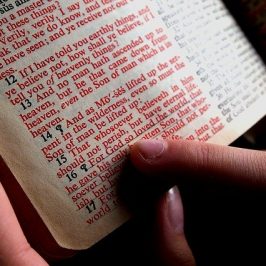 a master
verily, I say un
ak that we do know, and testi
e have seen; and ye receive not our
12 If I have told you earthly things, and
ye believe not, how shall ye believe, if I
tell you of heavenly things?
13 And no man hath ascended up to
heaven, but he that came down from
heaven, even the Son of man which is in
heaven.
14 ¶ And as Moses lifted up the ser-
pent in the wilderness, even so must the
Son of man be lifted up:
15 whosoever believeth in him
should not perish, but have eternal life.
16 ¶ For God so loved the world, that
he gave his on
soever believ should not
perish
17 For into the
wor